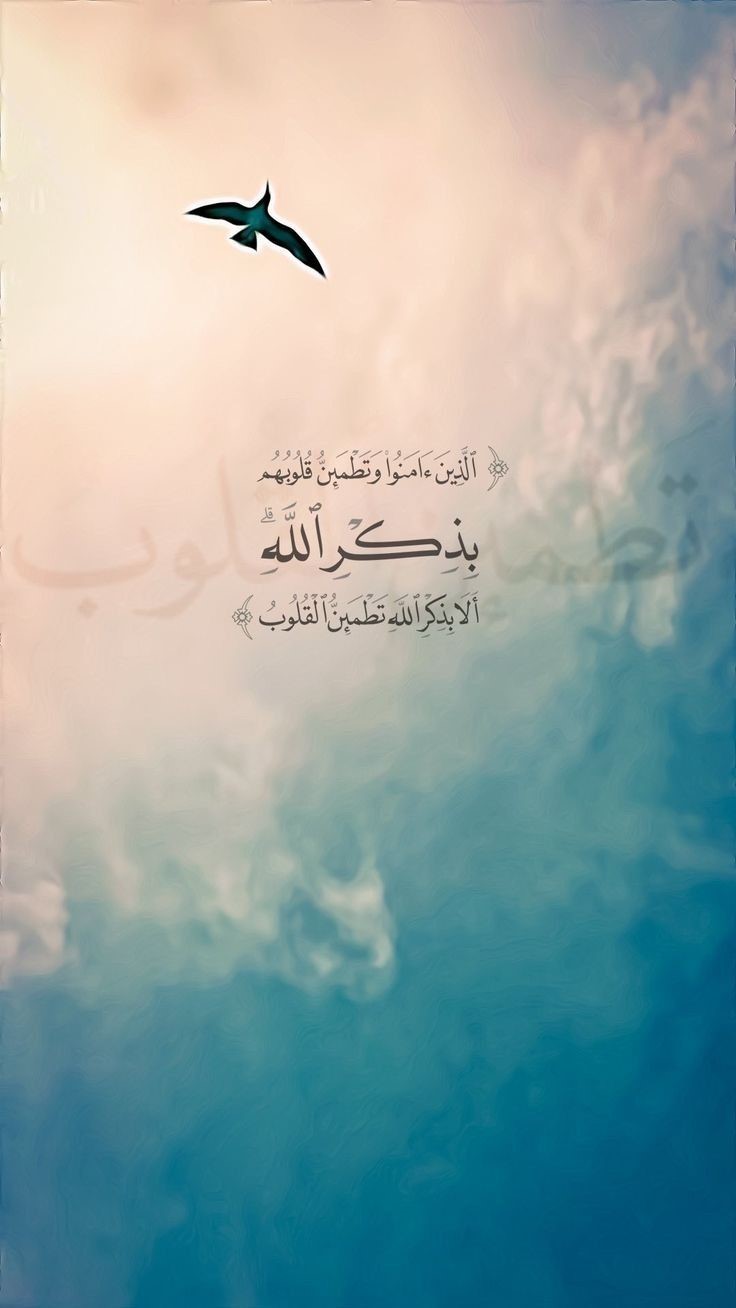 ﴿ ٱلَّذِينَ ءَامَنُوا۟ وَتَطْمَئِنُّ قُلُوبُهُم
بِذِكْرِ ٱللَّهِ ۗ
أَلَا بِذِكْرِ ٱللَّهِ تَطْمَئِنُّ ٱلْقُلُوبُ ﴾
تطمئن القلوب